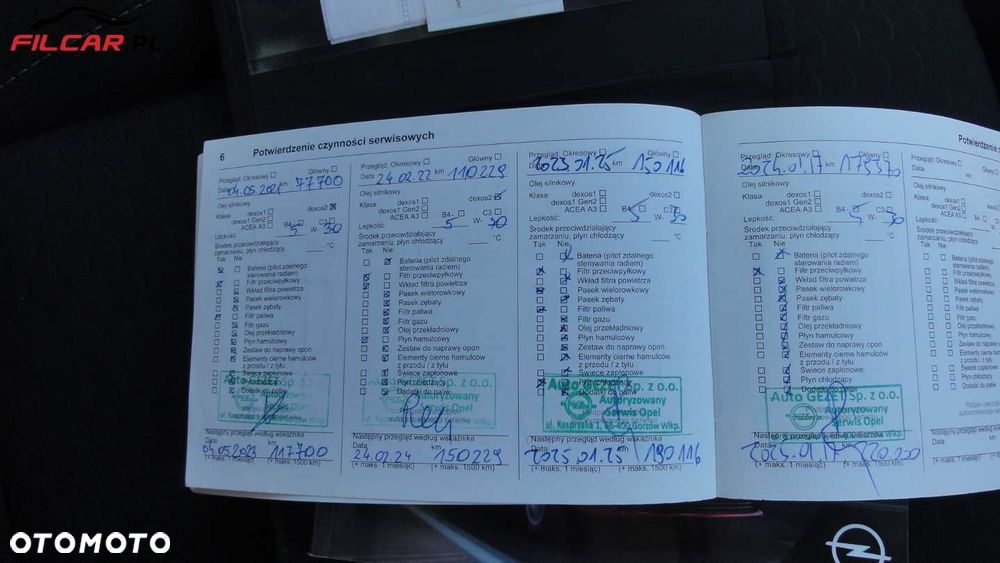 FILCAR.PL
6 Potwierdzenie czynności serwisowych
Przegląd: Okresowy Główny
Data 04.05.2021 km 77700
Olej silnikowy
Klasa: dexos1 dexos2
dexos1 Gen2
ACEA A3 B4 C3
Lepkość: 5 W- 30
Środek przeciwdziałający
zamarzaniu, płyn chłodzący: °C
Tak Nie
Bateria (pilot zdalnego
sterowania radiem)
Filtr przeciwpyłkowy
Wkład filtra powietrza
Pasek wielorowkowy
Pasek zębaty
Filtr paliwa
Filtr gazu
Olej przekładniowy
Płyn hamulcowy
Zestaw do naprawy opon
Elementy cierne hamulców
z przodu / z tyłu
Świece zapłonowe
Auto Sp. z o.o.
Serwis Opel
Następny przegląd według wskaźnika
Data km
04.05.2023 117700
(+ maks. 1 miesiąc) (+ maks. 1500 km)
Przegląd: Okresowy Główny
Data 24.02.22 km 110229
Olej silnikowy
Klasa: dexos1 dexos2
dexos1 Gen2
ACEA A3 B4- C3
Lepkość: 5 W- 30
Środek przeciwdziałający
zamarzaniu, płyn chłodzący: °C
Tak Nie
Bateria (pilot zdalnego
sterowania radiem)
Filtr przeciwpyłkowy
Wkład filtra powietrza
Pasek wielorowkowy
Pasek zębaty
Filtr paliwa
Filtr gazu
Olej przekładniowy
Płyn hamulcowy
Zestaw do naprawy opon
Elementy cierne hamulców
z przodu / z tyłu
Świece zapłonowe
Płyn chłodzący
Dodatki do paliw
Sp. z o.o.
Serwis Opel
Następny przegląd według wskaźnika
Data km
24.02.24 150229
(+ maks. 1 miesiąc) (+ maks. 1500 km)
Przegląd: Okresowy Główny
Data 2023.01.25 km 150116
Olej silnikowy
Klasa: dexos1 dexos2
dexos1 Gen2
ACEA A3 B4 C3
Lepkość: 5 W- 30
Środek przeciwdziałający
zamarzaniu, płyn chłodzący: °C
Tak Nie
Bateria (pilot zdalnego
sterowania radiem)
Filtr przeciwpyłkowy
Wkład filtra powietrza
Pasek wielorowkowy
Pasek zębaty
Filtr paliwa
Filtr gazu
Olej przekładniowy
Płyn hamulcowy
Zestaw do naprawy opon
Elementy cierne hamulców
z przodu / z tyłu
Świece zapłonowe
Płyn chłodzący
Dodatki do paliw
Auto GEZET Sp. z o.o.
Autoryzowany
Serwis Opel
ul. Kasprzaka 1, 66-400 Gorzów Wlkp.
Następny przegląd według wskaźnika
Data km
2025.01.25 190116
(+ maks. 1 miesiąc) (+ maks. 1500 km)
Przegląd: Okresowy Główny
Data 2024.01.17 km
Olej silnikowy
Klasa: dexos1 dexos2
dexos1 Gen2
ACEA A3 B4- C3
Lepkość: 5 W- 30
Środek przeciwdziałający
zamarzaniu, płyn chłodzący: °C
Tak Nie
Bateria (pilot zdalnego
sterowania radiem)
Filtr przeciwpyłkowy
Wkład filtra powietrza
Pasek wielorowkowy
Pasek zębaty
Filtr paliwa
Filtr gazu
Olej przekładniowy
Płyn hamulcowy
Zestaw do naprawy opon
Elementy cierne hamulców
z przodu / z tyłu
Świece zapłonowe
Płyn chłodzący
Dodatki do paliw
Auto GEZET Sp. z o.o.
Autoryzowany
Serwis Opel
Następny przegląd według wskaźnika
Data km
(+ maks. 1 miesiąc) (+ maks. 1500 km)
OTOMOTO